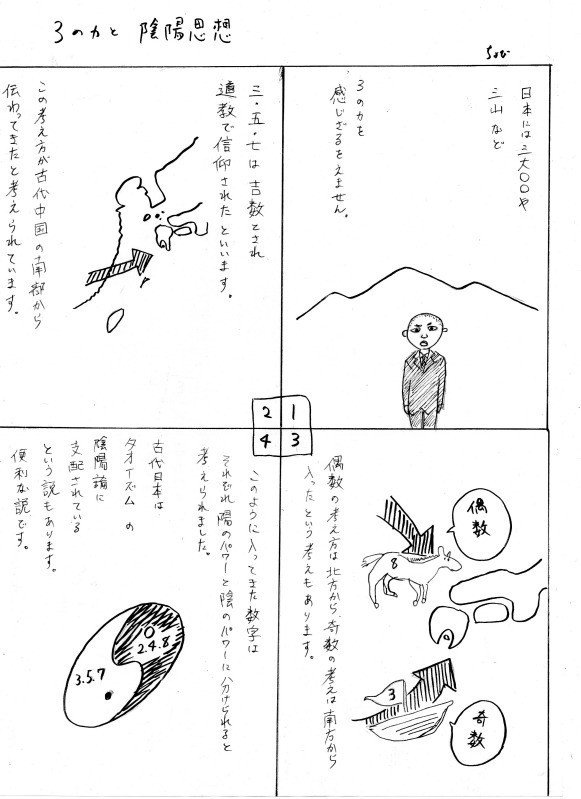 3の力と 陰陽思想
日本には三大〇〇や
三山など
3の力を
感じざるをえません。
三・五・七は吉数とされ
道教で信仰されたといいます。
この考え方が古代中国の南部から
伝わってきたと考えられています。
2 1
4 3
偶数の考え方は北方から、奇数の考えは南方から
入ったという考えもあります。
偶数
8
3
奇数
このように入ってきた数字は
それぞれ陽のパワーと陰のパワーに分けられると
考えられました。
古代日本は
タオイズムの
陰陽論に
支配されている
という説もあります。
便利な説です。
2.4.8
3.5.7